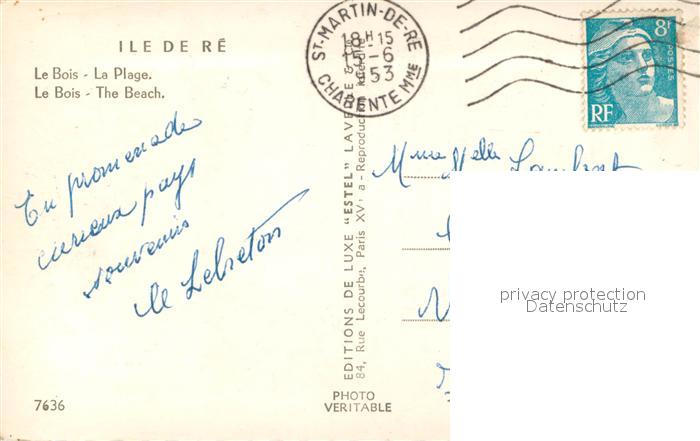 ILE DE RÉ
Le Bois - La Plage.
Le Bois - The Beach.
En promenade
curieux pays
souvenirs
de Lebreton
7636
EDITIONS DE LUXE "ESTEL" LAVELLE & Cie
84, Rue Lecourbe, Paris XVe - Reproduction interdite
PHOTO
VERITABLE
ST-MARTIN-DE-RE
18H15
15-6
1953
CHARENTE Mme
8F
POSTES
RF
Mme Melle Lambert
privacy protection
Datenschutz